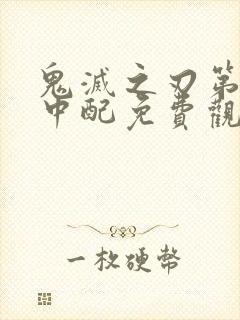 鬼滅之刃第
中配免費觀
一枚硬幣